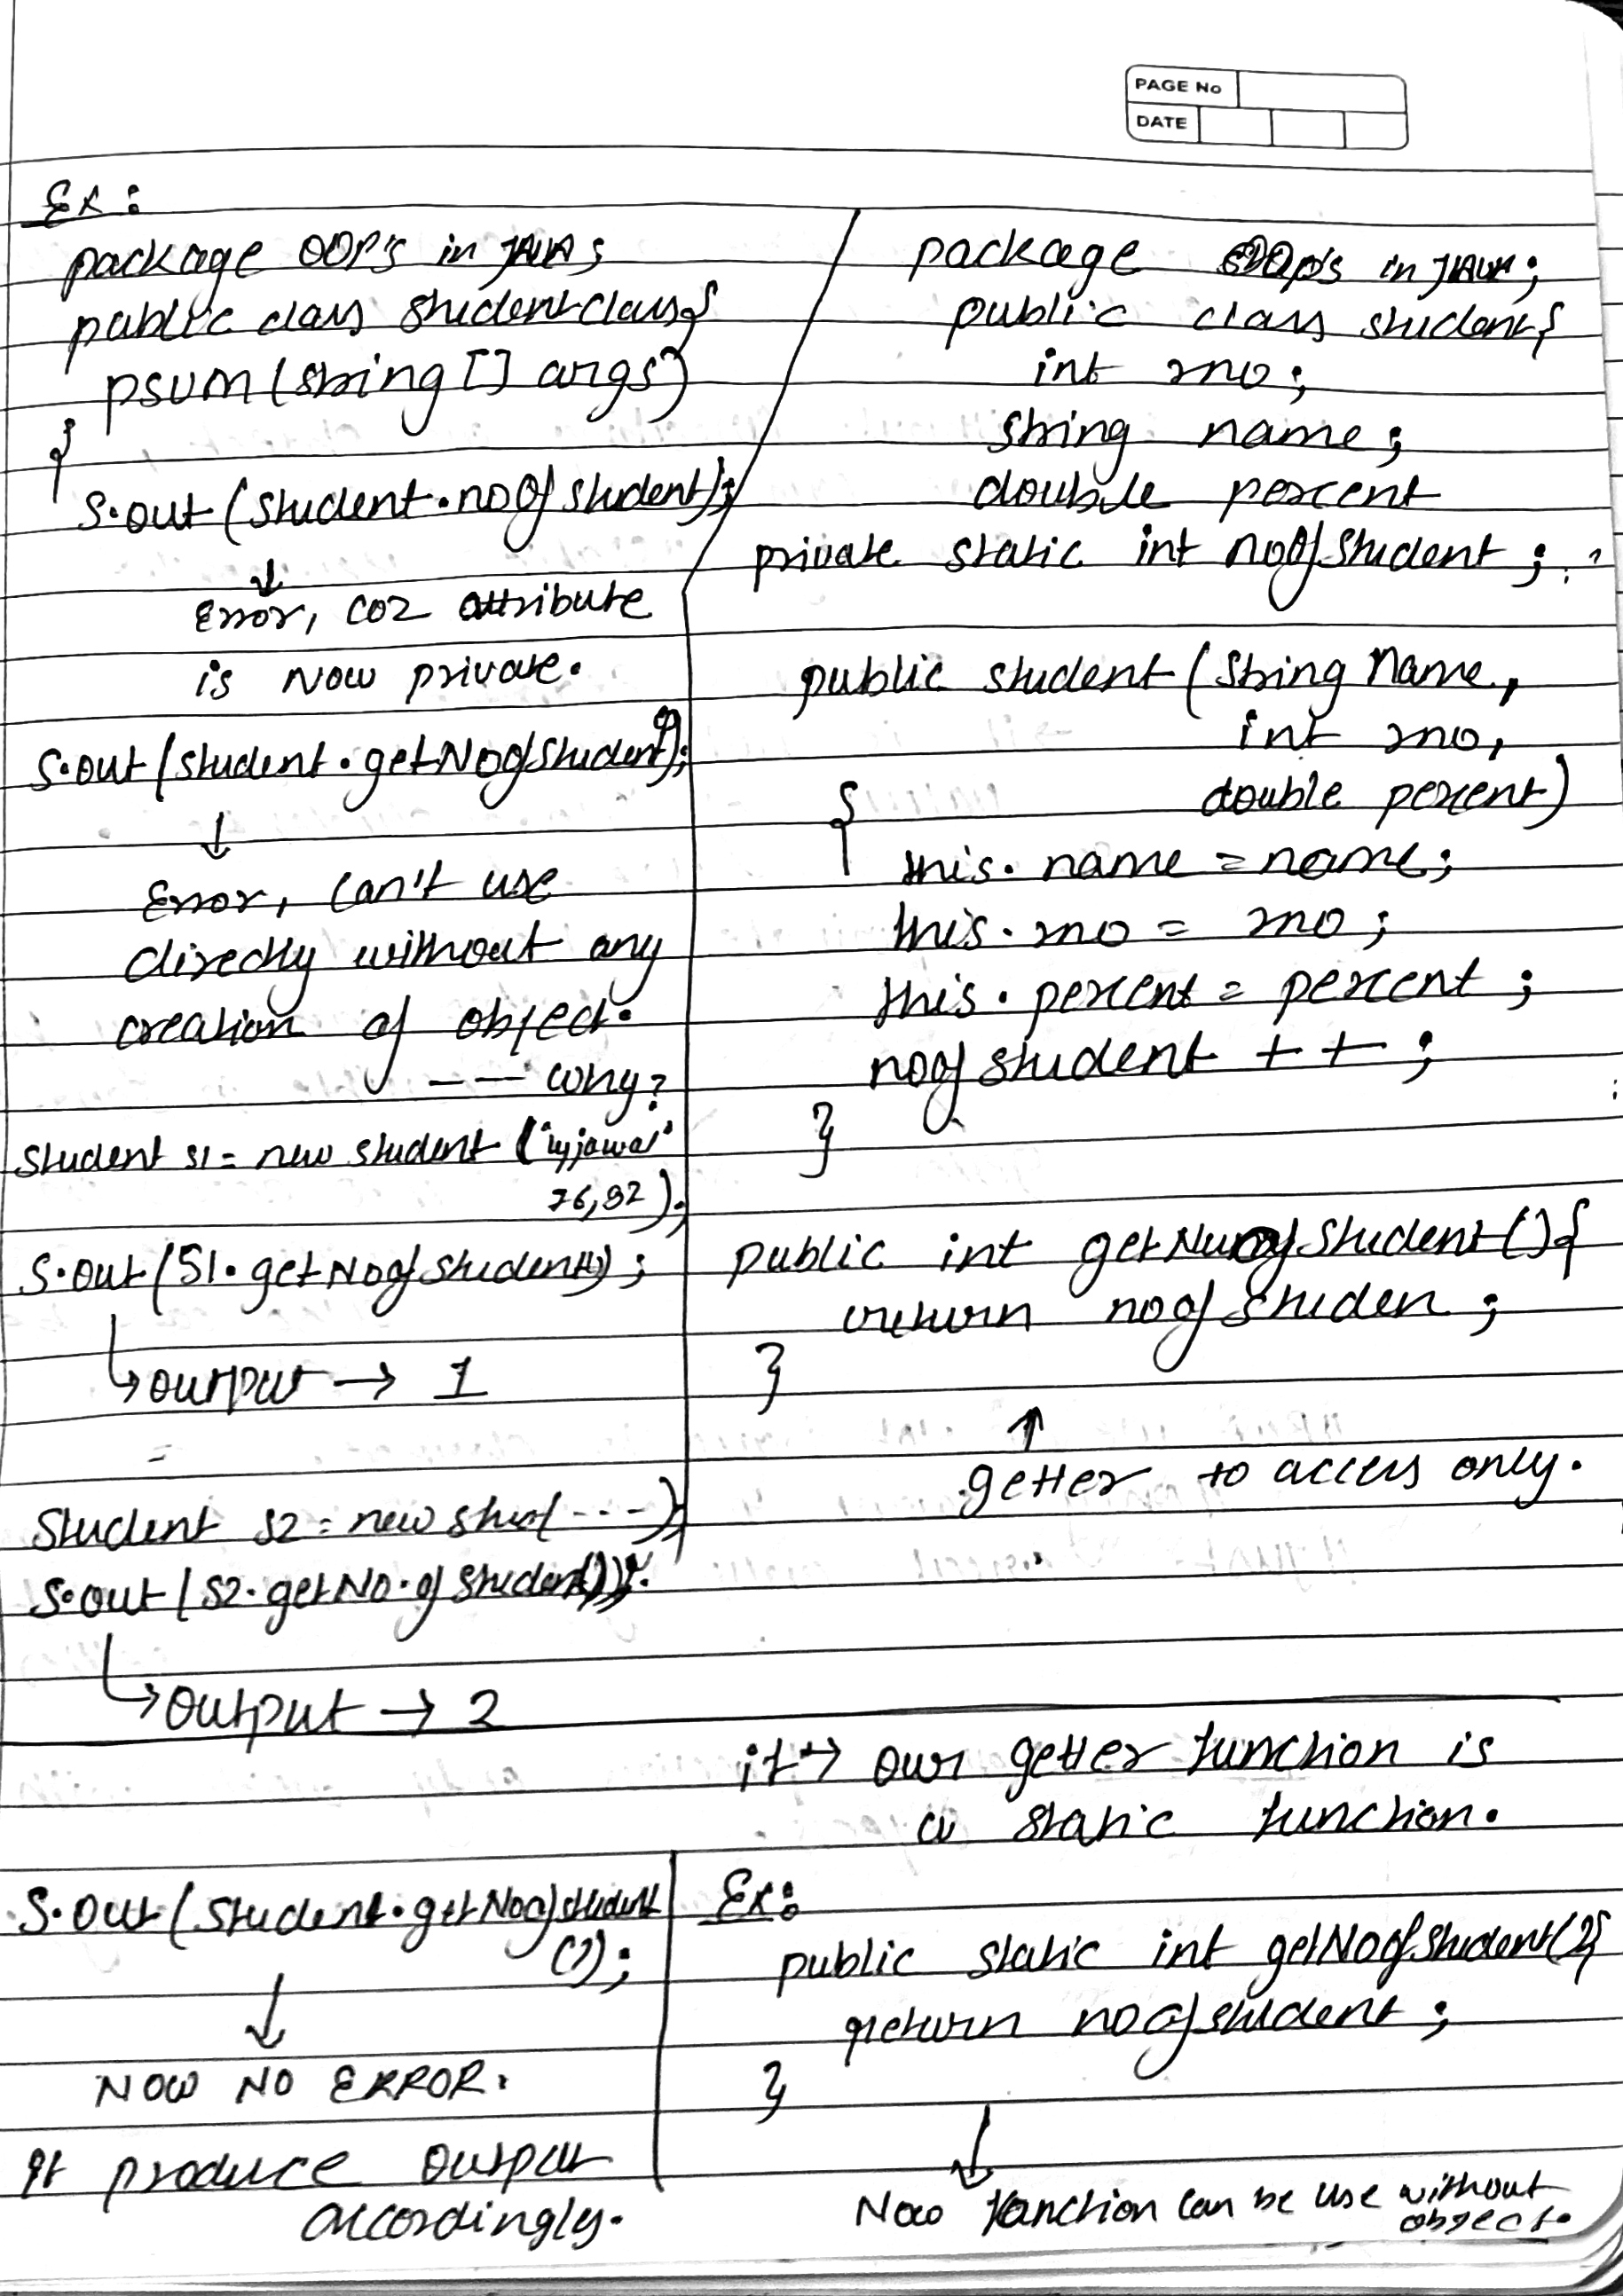 PAGE No
DATE
Ex:
package OOP's in JAVA;
public class studentclass{
psvm (string [] args)
{
S.out (student.noof student);
↓
Error, coz attribute
is now private.
S.out (student.getNoofstudent());
↓
Error, can't use
directly without any
creation of object.
-- why?
student s1 = new student ("ujjawal"
76,92);
S.out (S1.getNoofstudent());
↳ output → 1
Student s2 = new stud(---);
S.out (S2.getNo.of student());
↳ output → 2
package OOp's in JAVA;
public class student{
int rno;
string name;
double percent
private static int noofstudent;
public student (String name,
int rno,
double percent)
{
this.name = name;
this.rno = rno;
this.percent = percent;
noof student ++;
}
public int getNuof student (){
return noof studen;
}
↑
getter to access only.
if → our getter function is
a static function.
S.out (student.getNoofstudent
());
↓
NOW NO ERROR.
It produce output
accordingly.
Ex:
public static int getNoofstudent(){
return noofstudent;
}
↓
Now function can be use without
object.